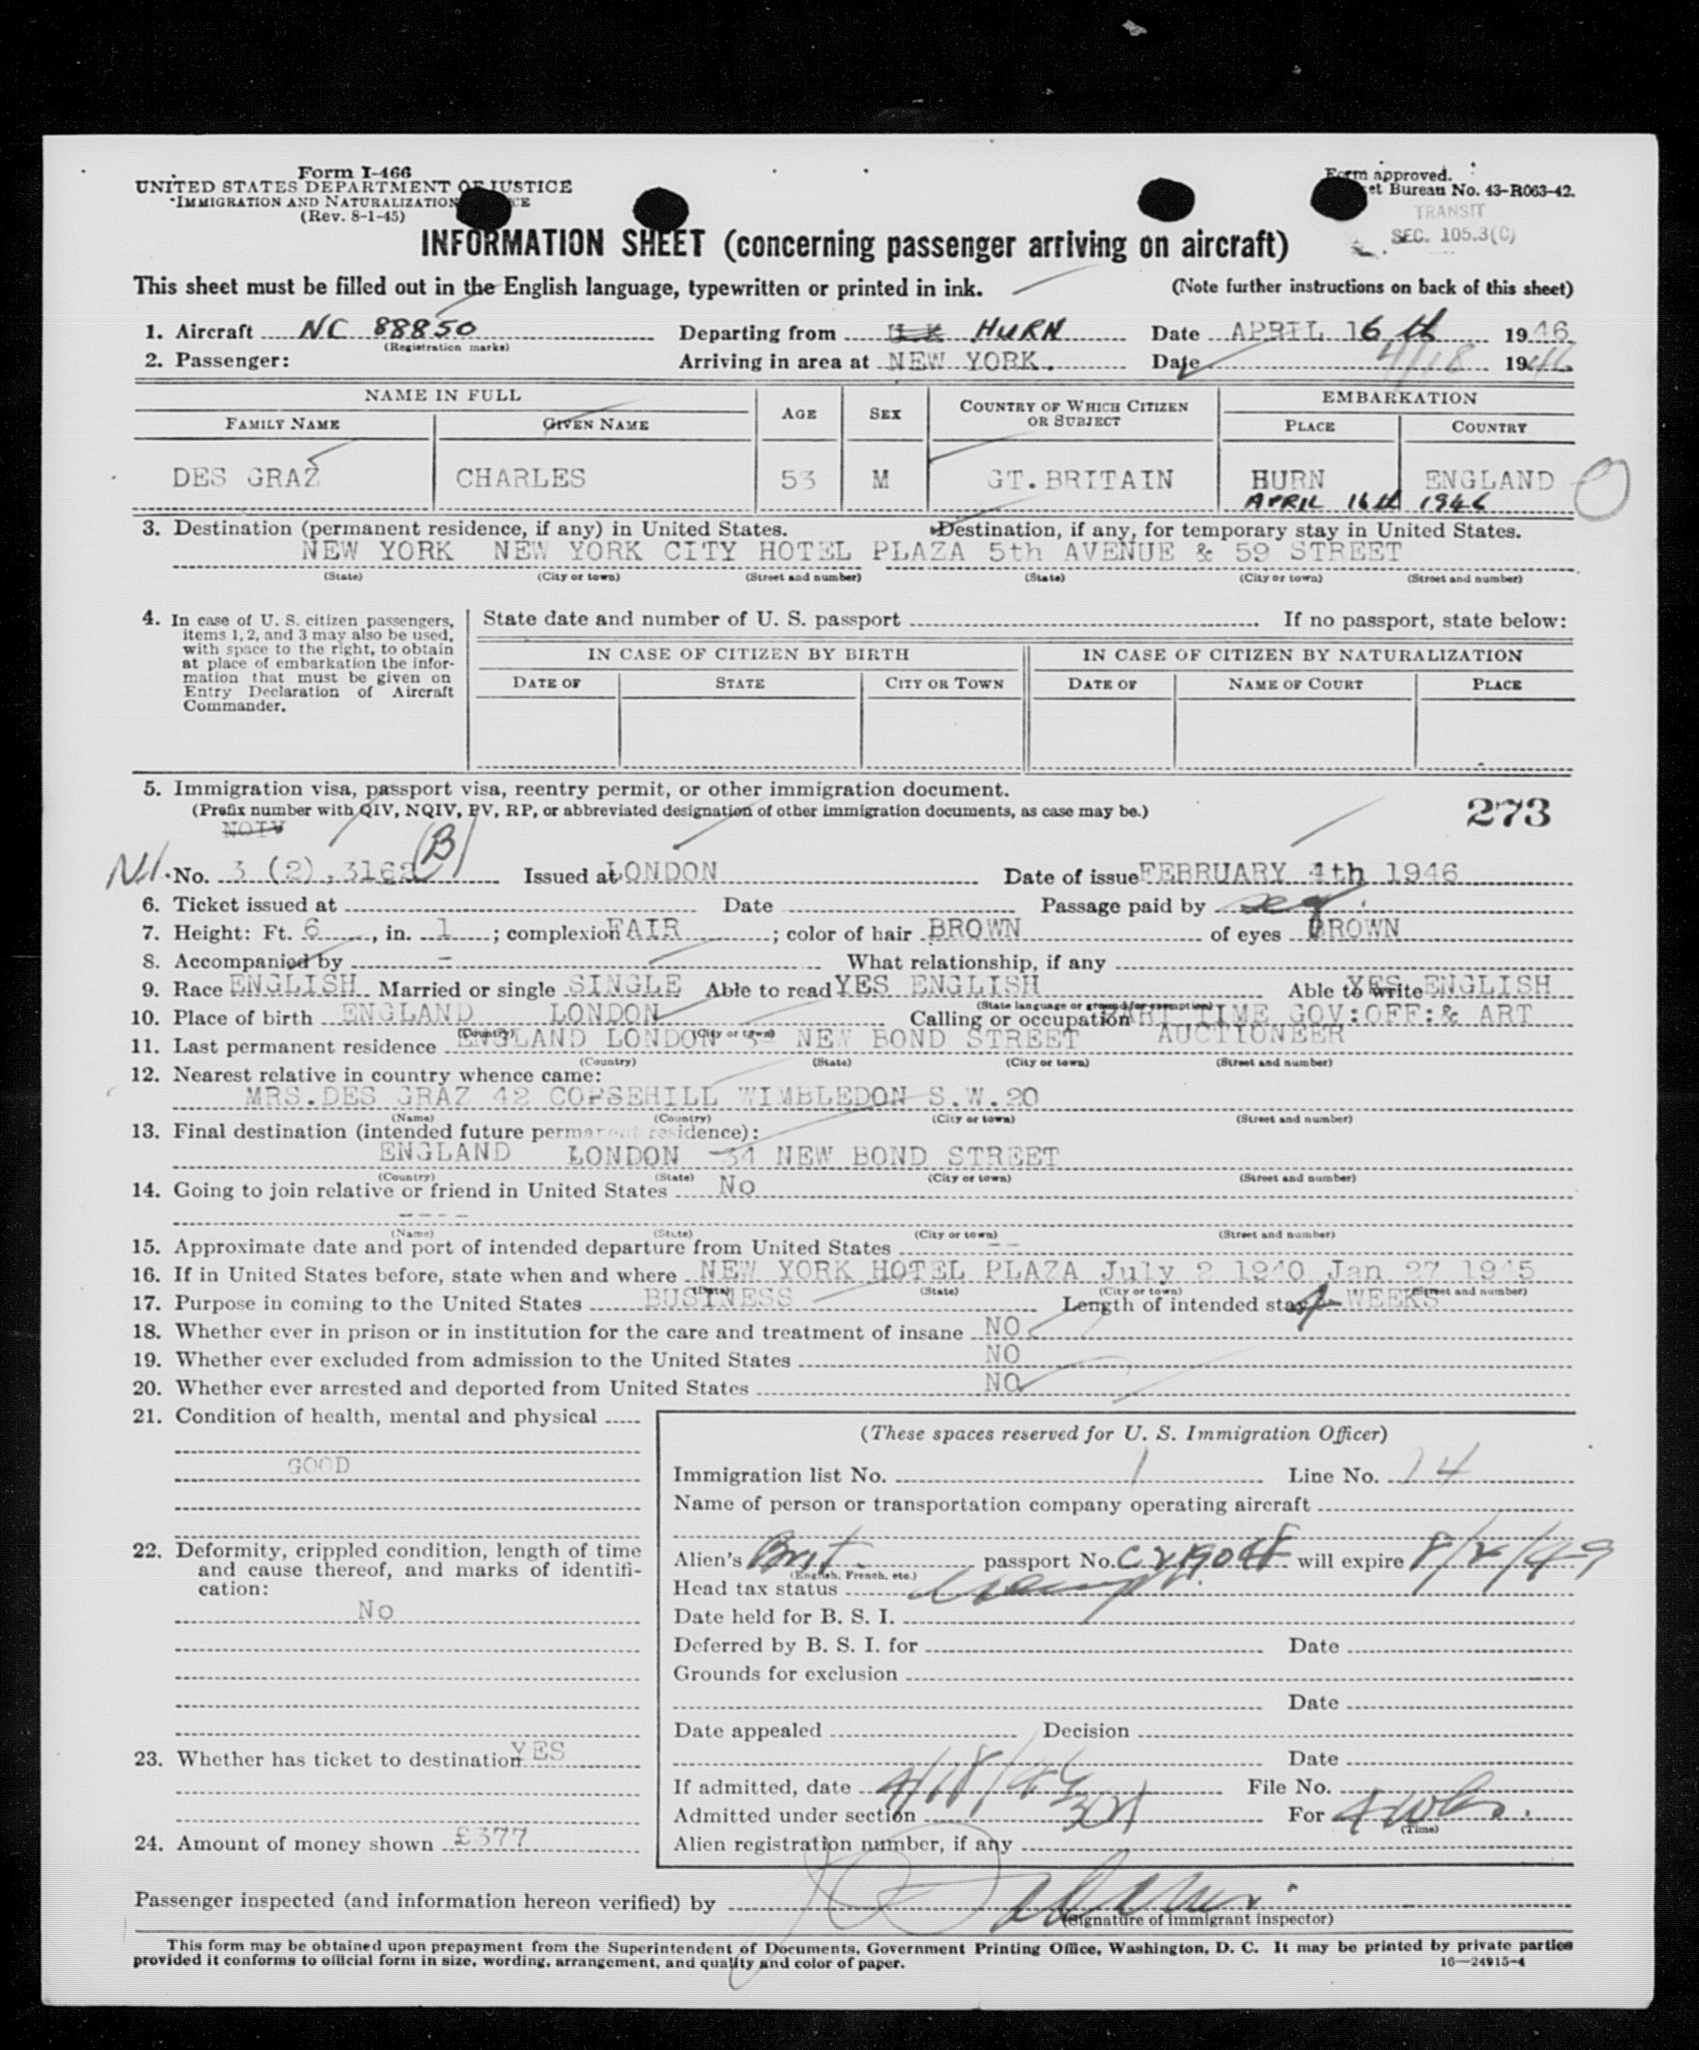 Form I-466
UNITED STATES DEPARTMENT OF JUSTICE
IMMIGRATION AND NATURALIZATION
(Rev. 8-1-45)
Form approved.
Bureau No. 43-R063-42.
TRANSIT
SEC. 105.3(C)
INFORMATION SHEET (concerning passenger arriving on aircraft)
This sheet must be filled out in the English language, typewritten or printed in ink. (Note further instructions on back of this sheet)
1. Aircraft NC 88850 Departing from HURN Date APRIL 16 th 1946
(Registration marks)
2. Passenger: Arriving in area at NEW YORK. Date 4/18 1946
NAME IN FULL AGE SEX COUNTRY OF WHICH CITIZEN OR SUBJECT EMBARKATION
FAMILY NAME GIVEN NAME PLACE COUNTRY
DES GRAZ CHARLES 53 M GT.BRITAIN HURN ENGLAND
APRIL 16th 1946
3. Destination (permanent residence, if any) in United States. Destination, if any, for temporary stay in United States.
NEW YORK NEW YORK CITY HOTEL PLAZA 5th AVENUE & 59 STREET
(State) (City or town) (Street and number) (State) (City or town) (Street and number)
4. In case of U. S. citizen passengers, items 1, 2, and 3 may also be used, with space to the right, to obtain at place of embarkation the information that must be given on Entry Declaration of Aircraft Commander.
State date and number of U. S. passport If no passport, state below:
IN CASE OF CITIZEN BY BIRTH IN CASE OF CITIZEN BY NATURALIZATION
DATE OF STATE CITY OR TOWN DATE OF NAME OF COURT PLACE
5. Immigration visa, passport visa, reentry permit, or other immigration document.
(Prefix number with QIV, NQIV, PV, RP, or abbreviated designation of other immigration documents, as case may be.)
273
NQIV
No. 3 (2), 3162 (B) Issued at LONDON Date of issue FEBRUARY 4th 1946
6. Ticket issued at Date Passage paid by
7. Height: Ft. 6, in. 1; complexion FAIR; color of hair BROWN of eyes BROWN
8. Accompanied by - What relationship, if any
9. Race ENGLISH Married or single SINGLE Able to read YES ENGLISH Able to write YES ENGLISH
(State language or ground for exemption)
10. Place of birth ENGLAND LONDON Calling or occupation PART TIME GOV:OFF:& ART
(Country) (City or town)
AUCTIONEER
11. Last permanent residence ENGLAND LONDON 34 NEW BOND STREET
(Country) (State) (City or town) (Street and number)
12. Nearest relative in country whence came:
MRS.DES GRAZ 42 COPSEHILL WIMBLEDON S.W.20
(Name) (Country) (City or town) (Street and number)
13. Final destination (intended future permanent residence):
ENGLAND LONDON 34 NEW BOND STREET
(Country) (State) (City or town) (Street and number)
14. Going to join relative or friend in United States No
----
(Name) (State) (City or town) (Street and number)
15. Approximate date and port of intended departure from United States --
16. If in United States before, state when and where NEW YORK HOTEL PLAZA July 2 1940 Jan 27 1945
(Date) (State) (City or town) (Street and number)
17. Purpose in coming to the United States BUSINESS Length of intended stay 4 WEEKS
18. Whether ever in prison or in institution for the care and treatment of insane NO
19. Whether ever excluded from admission to the United States NO
20. Whether ever arrested and deported from United States NO
21. Condition of health, mental and physical
GOOD
22. Deformity, crippled condition, length of time
and cause thereof, and marks of identifi-
cation:
No
23. Whether has ticket to destination YES
24. Amount of money shown £377
(These spaces reserved for U. S. Immigration Officer)
Immigration list No. 1 Line No. 14
Name of person or transportation company operating aircraft
Alien's Brit. passport No. will expire
(English, French, etc.)
Head tax status
Date held for B. S. I.
Deferred by B. S. I. for Date
Grounds for exclusion
Date
Date appealed Decision
Date
If admitted, date 4/18/46 File No.
Admitted under section For 4 wks.
(Time)
Alien registration number, if any
Passenger inspected (and information hereon verified) by
(Signature of immigrant inspector)
This form may be obtained upon prepayment from the Superintendent of Documents, Government Printing Office, Washington, D. C. It may be printed by private parties
provided it conforms to official form in size, wording, arrangement, and quality and color of paper.
16—24915-4